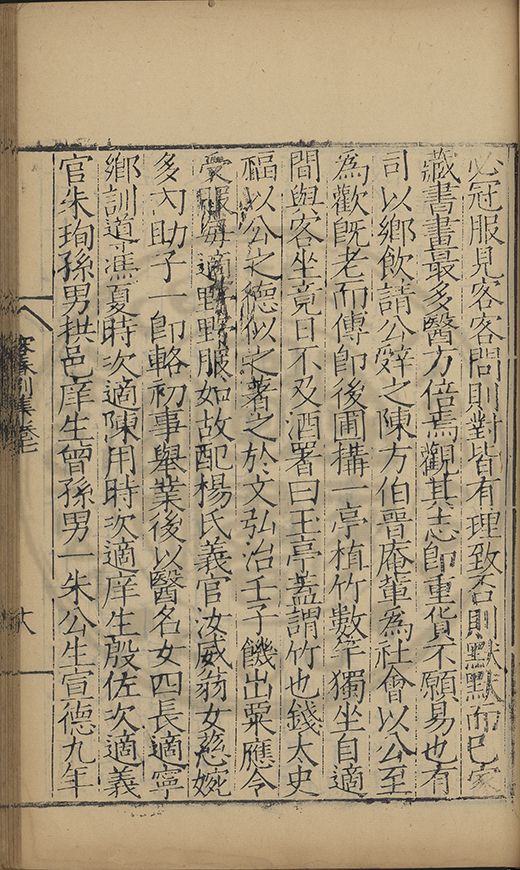 必冠服見客客問則對皆有理致否則默默而已家
藏書畫最多醫方倍焉觀其志即重貨不願易也有
司以鄉飲請公辭之陳方伯晉庵輩為社會以公至
為歡既老而傳即後圃搆一亭植竹數竿獨坐自適
間與客坐竟日不及酒署曰玉亭蓋謂竹也錢太史
樞以公之德似之著之於文弘治壬子饑出粟應令
受服每適野野服如故配楊氏義官汝威翁女慈婉
多內助子一即輅初事舉業後以醫名女四長適寧
鄉訓道馮夏時次適陳用時次適庠生殷佐次適義
官朱珣孫男拱邑庠生曾孫男一朱公生宣德九年